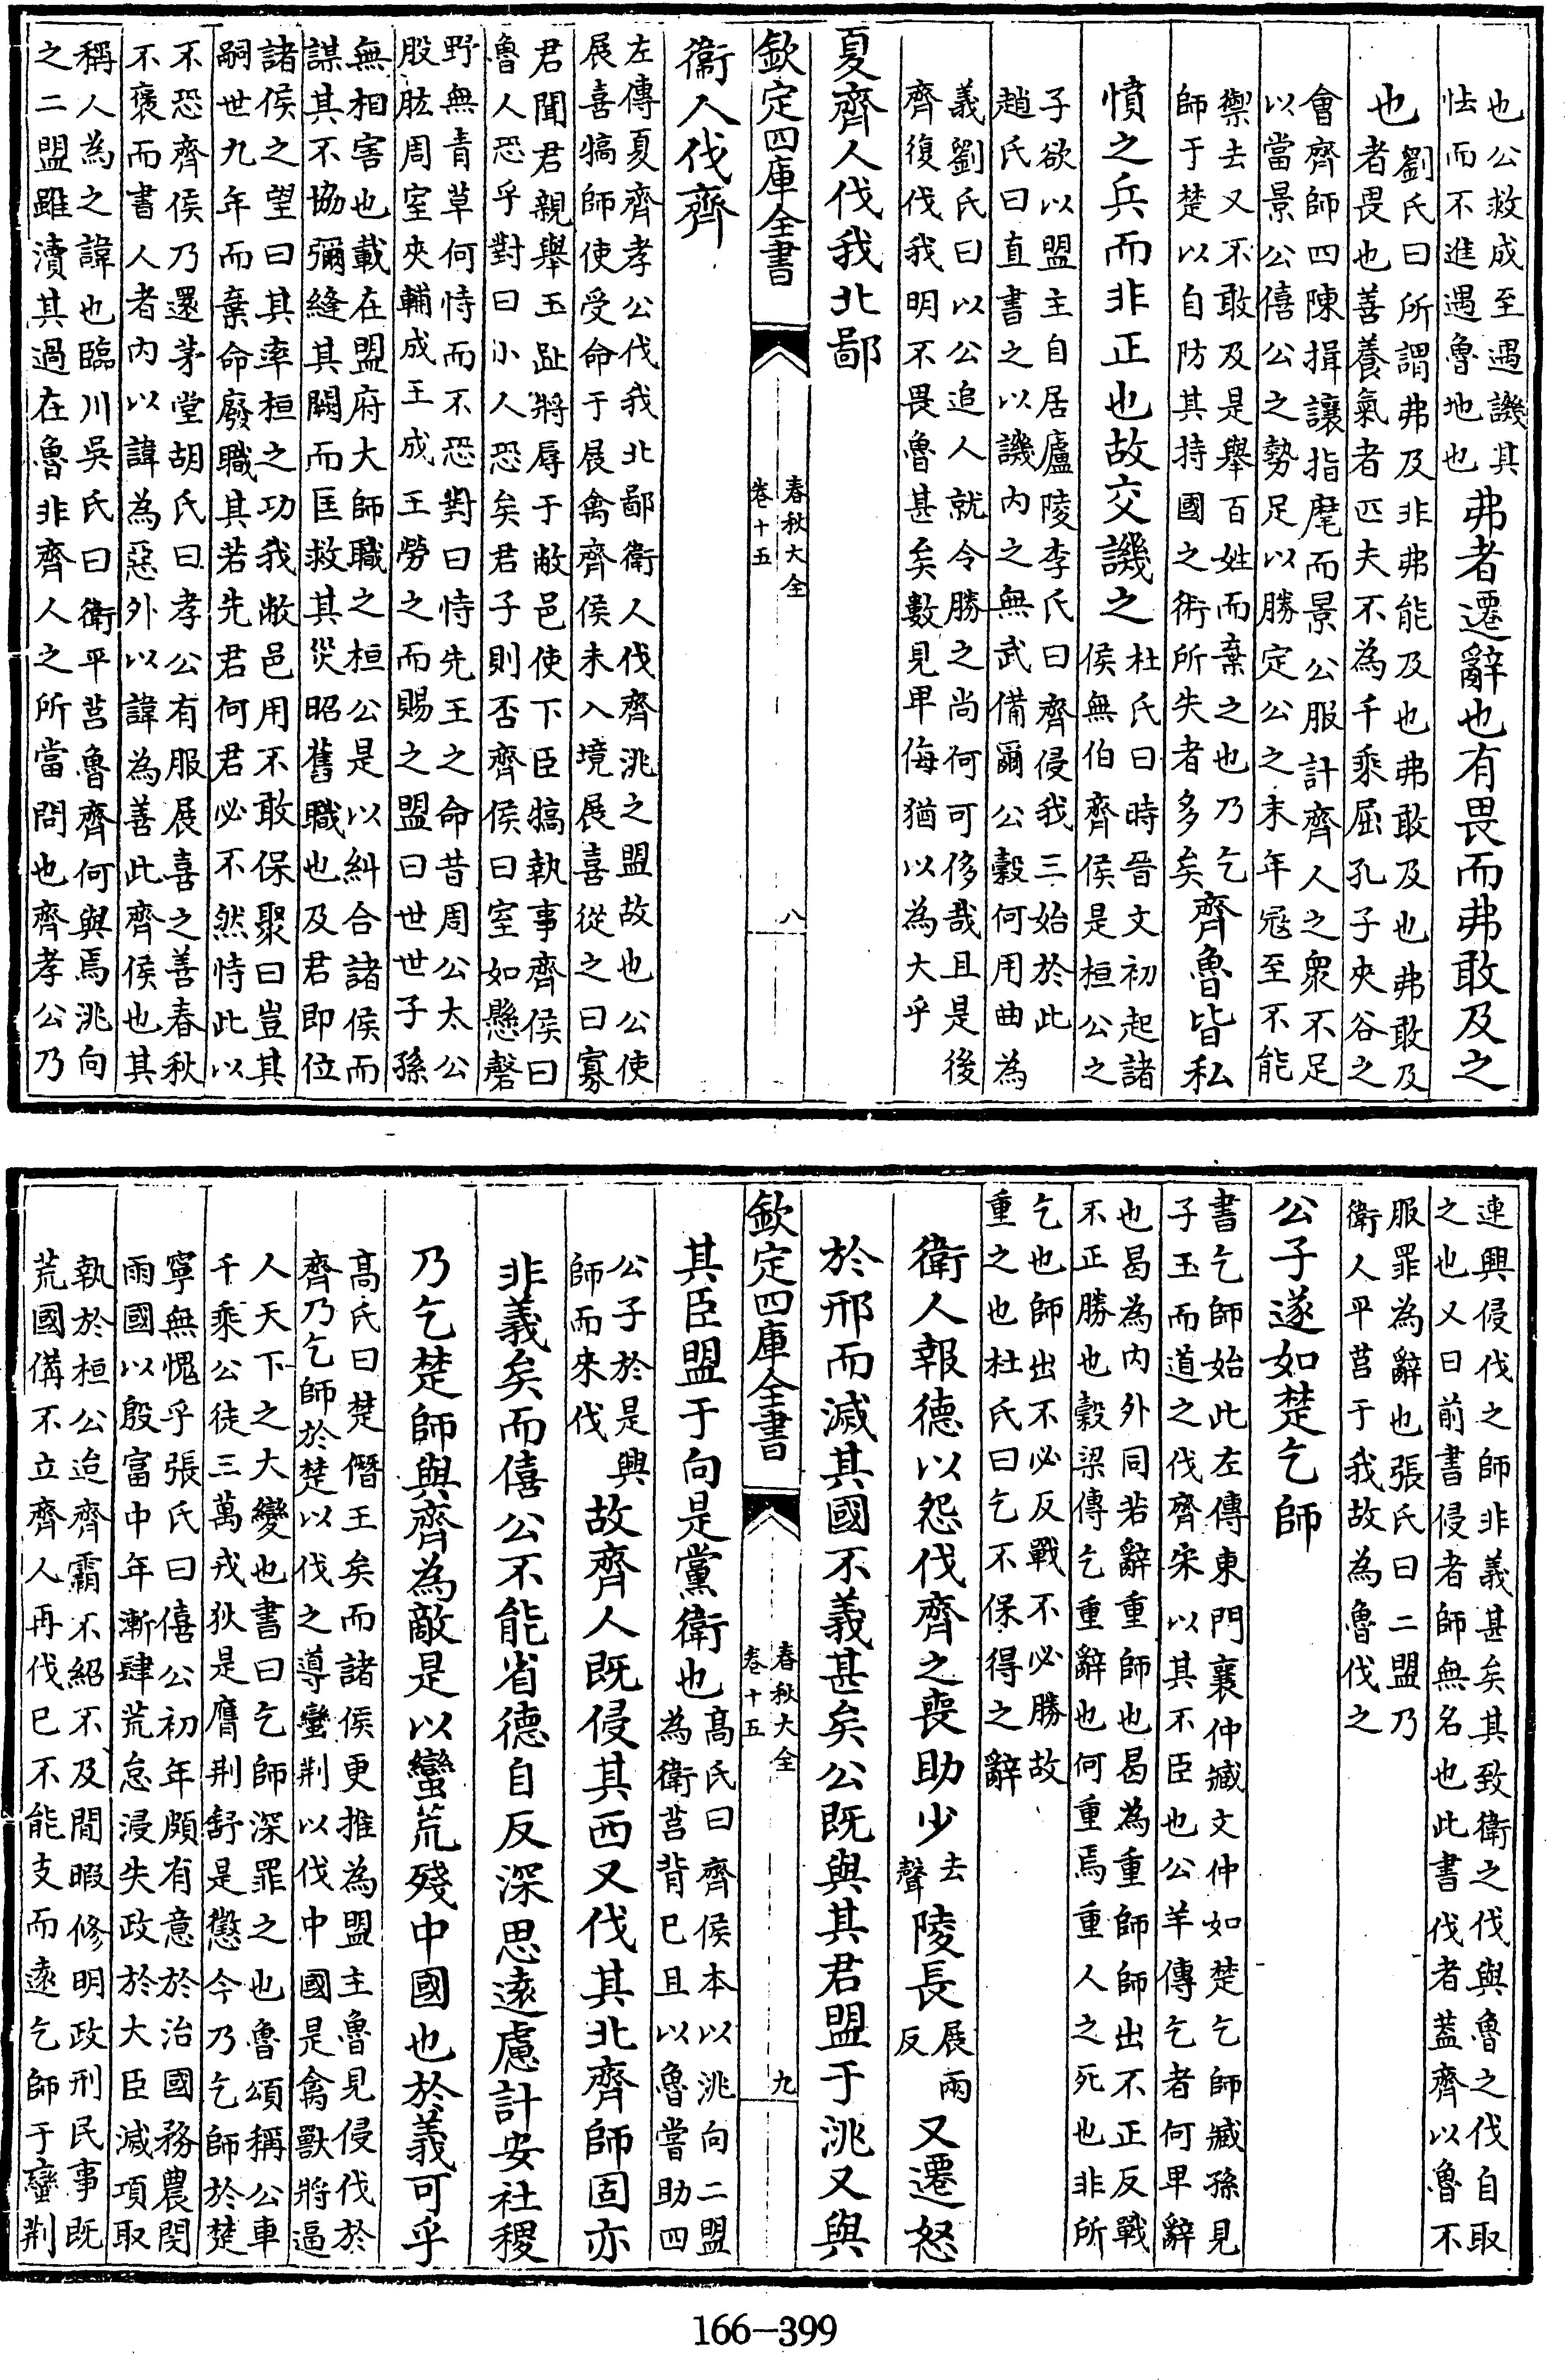 也公救成至遇譏其
怯而不進遇魯地也
弗者遷辭也有畏而弗敢及之
也
劉氏曰所謂弗及非弗能及也弗敢及也弗敢及
者畏也善養氣者匹夫不為千乘屈孔子夾谷之
會齊師四陳揖讓指麾而景公服計齊人之衆不足
以當景公僖公之勢足以勝定公之末年冦至不能
禦去又不敢及是舉百姓而棄之也乃乞
師于楚以自防其持國之術所失者多矣
齊魯皆私
憤之兵而非正也故交譏之
杜氏曰時晉文初起諸
侯無伯齊侯是桓公之
子欲以盟主自居廬陵李氏曰齊侵我三始於此
趙氏曰直書之以譏内之無武備爾公穀何用曲為
義劉氏曰以公追人就令勝之尚何可侈哉且是後
齊復伐我明不畏魯甚矣數見卑侮猶以為大乎
夏齊人伐我北鄙
欽定四庫全書
春秋大全
卷十五
八
衞人伐齊
左傳夏齊孝公伐我北鄙衛人伐齊洮之盟故也公使
展喜犒師使受命于展禽齊侯未入境展喜從之曰寡
君聞君親舉玉趾將辱于敝邑使下臣犒執事齊侯曰
魯人恐乎對曰小人恐矣君子則否齊侯曰室如懸罄
野無青草何恃而不恐對曰恃先王之命昔周公太公
股肱周室夾輔成王成王勞之而賜之盟曰世世子孫
無相害也載在盟府大師職之桓公是以糾合諸侯而
謀其不協彌縫其闕而匡救其災昭舊職也及君即位
諸侯之望曰其率桓之功我敝邑用不敢保聚曰豈其
嗣世九年而棄命廢職其若先君何君必不然恃此以
不恐齊侯乃還茅堂胡氏曰孝公有服展喜之善春秋
不褒而書人者内以諱為惡外以諱為善此齊侯也其
稱人為之諱也臨川吳氏曰衛平莒魯齊何與焉洮向
之二盟雖瀆其過在魯非齊人之所當問也齊孝公乃
連興侵伐之師非義甚矣其致衛之伐與魯之伐自取
之也又曰前書侵者師無名也此書伐者蓋齊以魯不
服罪為辭也張氏曰二盟乃
衛人平莒于我故為魯伐之
公子遂如楚乞師
書乞師始此左傳東門襄仲臧文仲如楚乞師臧孫見
子玉而道之伐齊宋以其不臣也公羊傳乞者何卑辭
也曷為内外同若辭重師也曷為重師師出不正反戰
不正勝也穀梁傳乞重辭也何重焉重人之死也非所
乞也師出不必反戰不必勝故
重之也杜氏曰乞不保得之辭
衛人報德以怨伐齊之喪助少
去
聲
陵長
展兩
反
又遷怒
於邢而滅其國不義甚矣公既與其君盟于洮又與
欽定四庫全書
春秋大全
卷十五
九
其臣盟于向是黨衛也
高氏曰齊侯本以洮向二盟
為衛莒背已且以魯嘗助四
公子於是興
師而來伐
故齊人既侵其西又伐其北齊師固亦
非義矣而僖公不能省德自反深思遠慮計安社稷
乃乞楚師與齊為敵是以蠻荒殘中國也於義可乎
高氏曰楚僭王矣而諸侯更推為盟主魯見侵伐於
齊乃乞師於楚以伐之導蠻荆以伐中國是禽獸將逼
人天下之大變也書曰乞師深罪之也魯頌稱公車
千乘公徒三萬戎狄是膺荆舒是懲今乃乞師於楚
寧無愧乎張氏曰僖公初年頗有意於治國務農閔
雨國以殷富中年漸肆荒怠浸失政於大臣滅項取
執於桓公迨齊霸不紹不及閒暇修明政刑民事既
荒國備不立齊人再伐已不能支而遠乞師于蠻荆
166—399